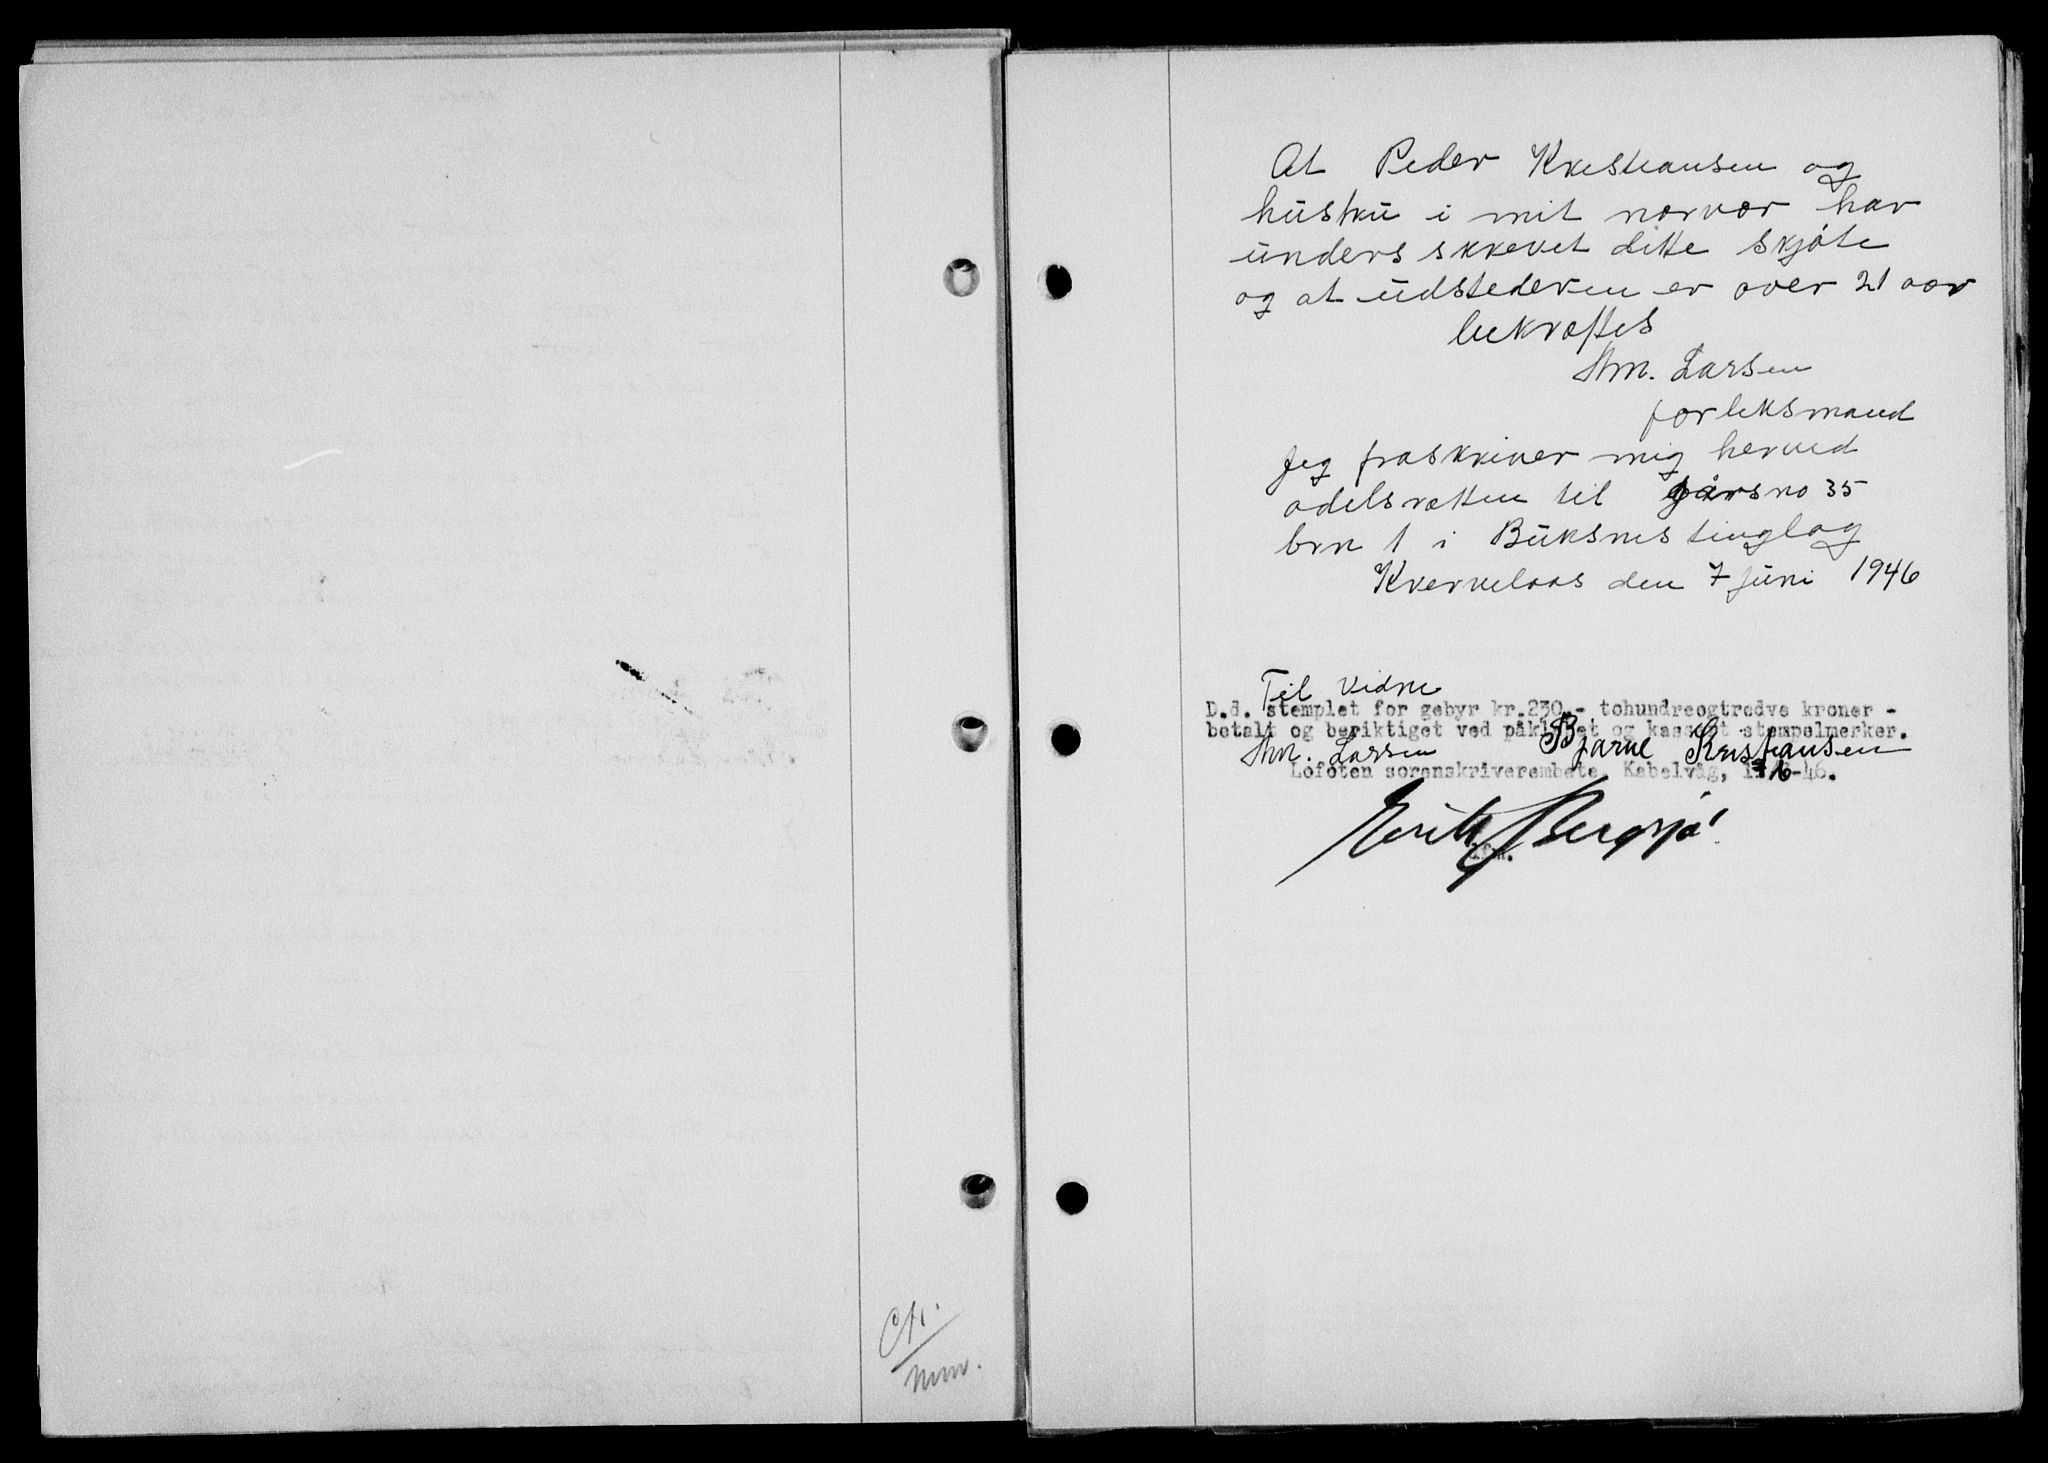 At Peder Kristiansen og
hustru i mit nærvær har
unders skrevet dette skjøte
og at udstederen er over 21 aar
bekræftes
Am. Larsen
forliksmand
Jeg fraskriver mig herved
odelsretten til gårsno 35
brn 1 i Buksnes tinglag
Kvervelaas den 7 juni 1946
Til vidne
D.d. stemplet for gebyr kr.230.- tohundreogtredve kroner -
betalt og beriktiget ved påklebet og kassert stempelmerker.
Am. Larsen Bjarne Kristiansen
Lofoten sorenskriverembete, Kabelvåg, -46.
Bergsjø
ifm.